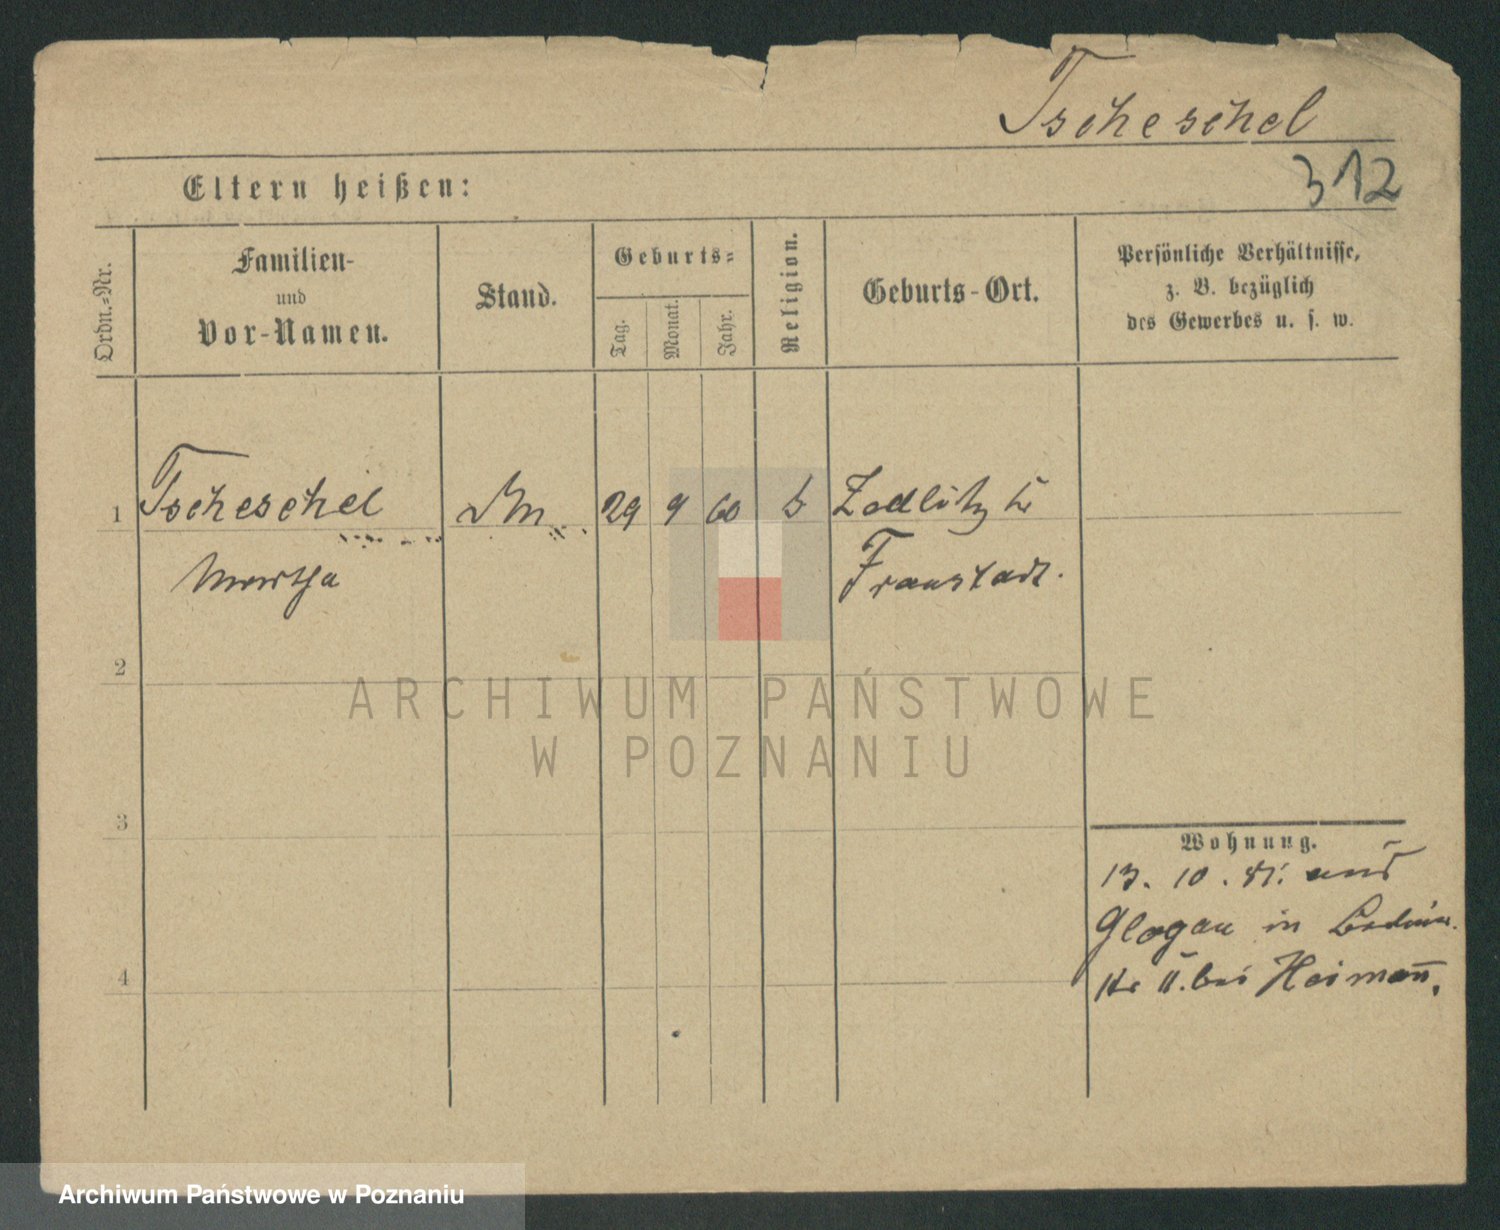 Tscheschel
312
Eltern heißen:
Ordn.-Nr.
Familien-
und
Vor-Namen.
Stand.
Geburts-
Tag.
Monat.
Jahr.
Religion.
Geburts-Ort.
Persönliche Verhältnisse,
z. B. bezüglich
des Gewerbes u. s. w.
1
Tscheschel
29
9
60
Zedlitz
Martha
Fraustadt.
2
ARCHIWUM PAŃSTWOWE
W POZNANIU
3
Wohnung.
13. 10. 81.
Glogau in
4
bei Heimann.
Archiwum Państwowe w Poznaniu